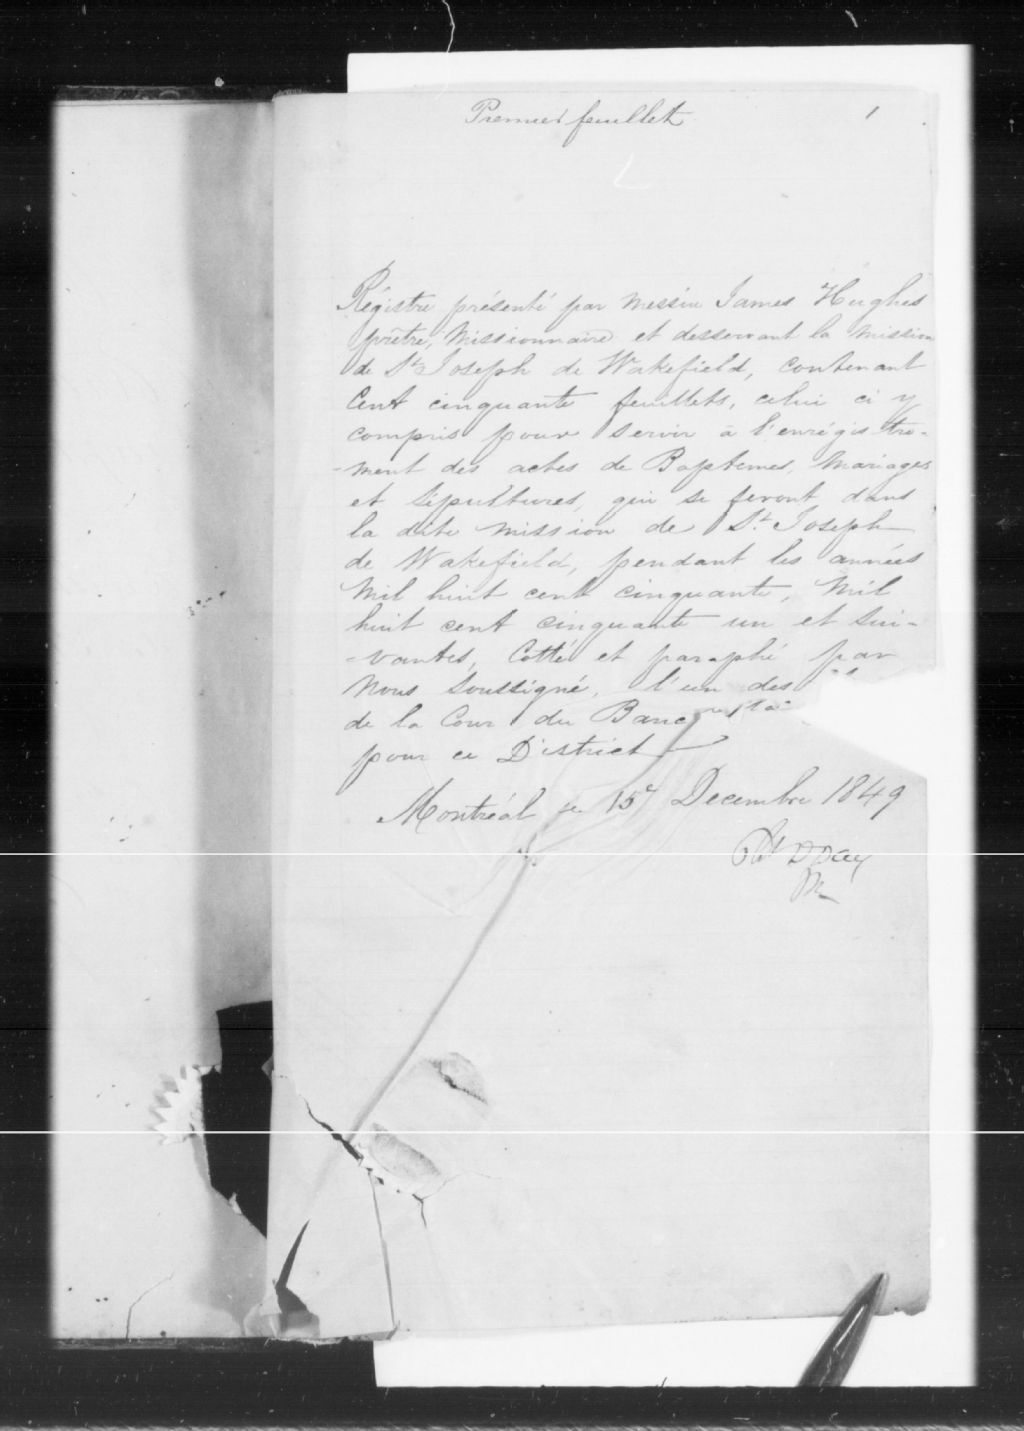 Premier feuillet
1
Régistre présenté par Messire James Hughes
prêtre, Missionnaire et desservant la mission
de St Joseph de Wakefield, contenant
Cent cinquante feuillets, celui ci y
compris pour servir à l'enrégistre-
-ment des actes de Baptemes, Mariages
et Sépultures, qui se feront dans
la dite mission de St Joseph
de Wakefield, pendant les années
Mil huit cent cinquante, Mil
huit cent cinquante un et sui-
-vantes, Cotté et paraphé par
Nous Soussigné, l'un des
de la Cour du Banc
pour ce District
Montréal ce 15e Decembre 1849
D Day